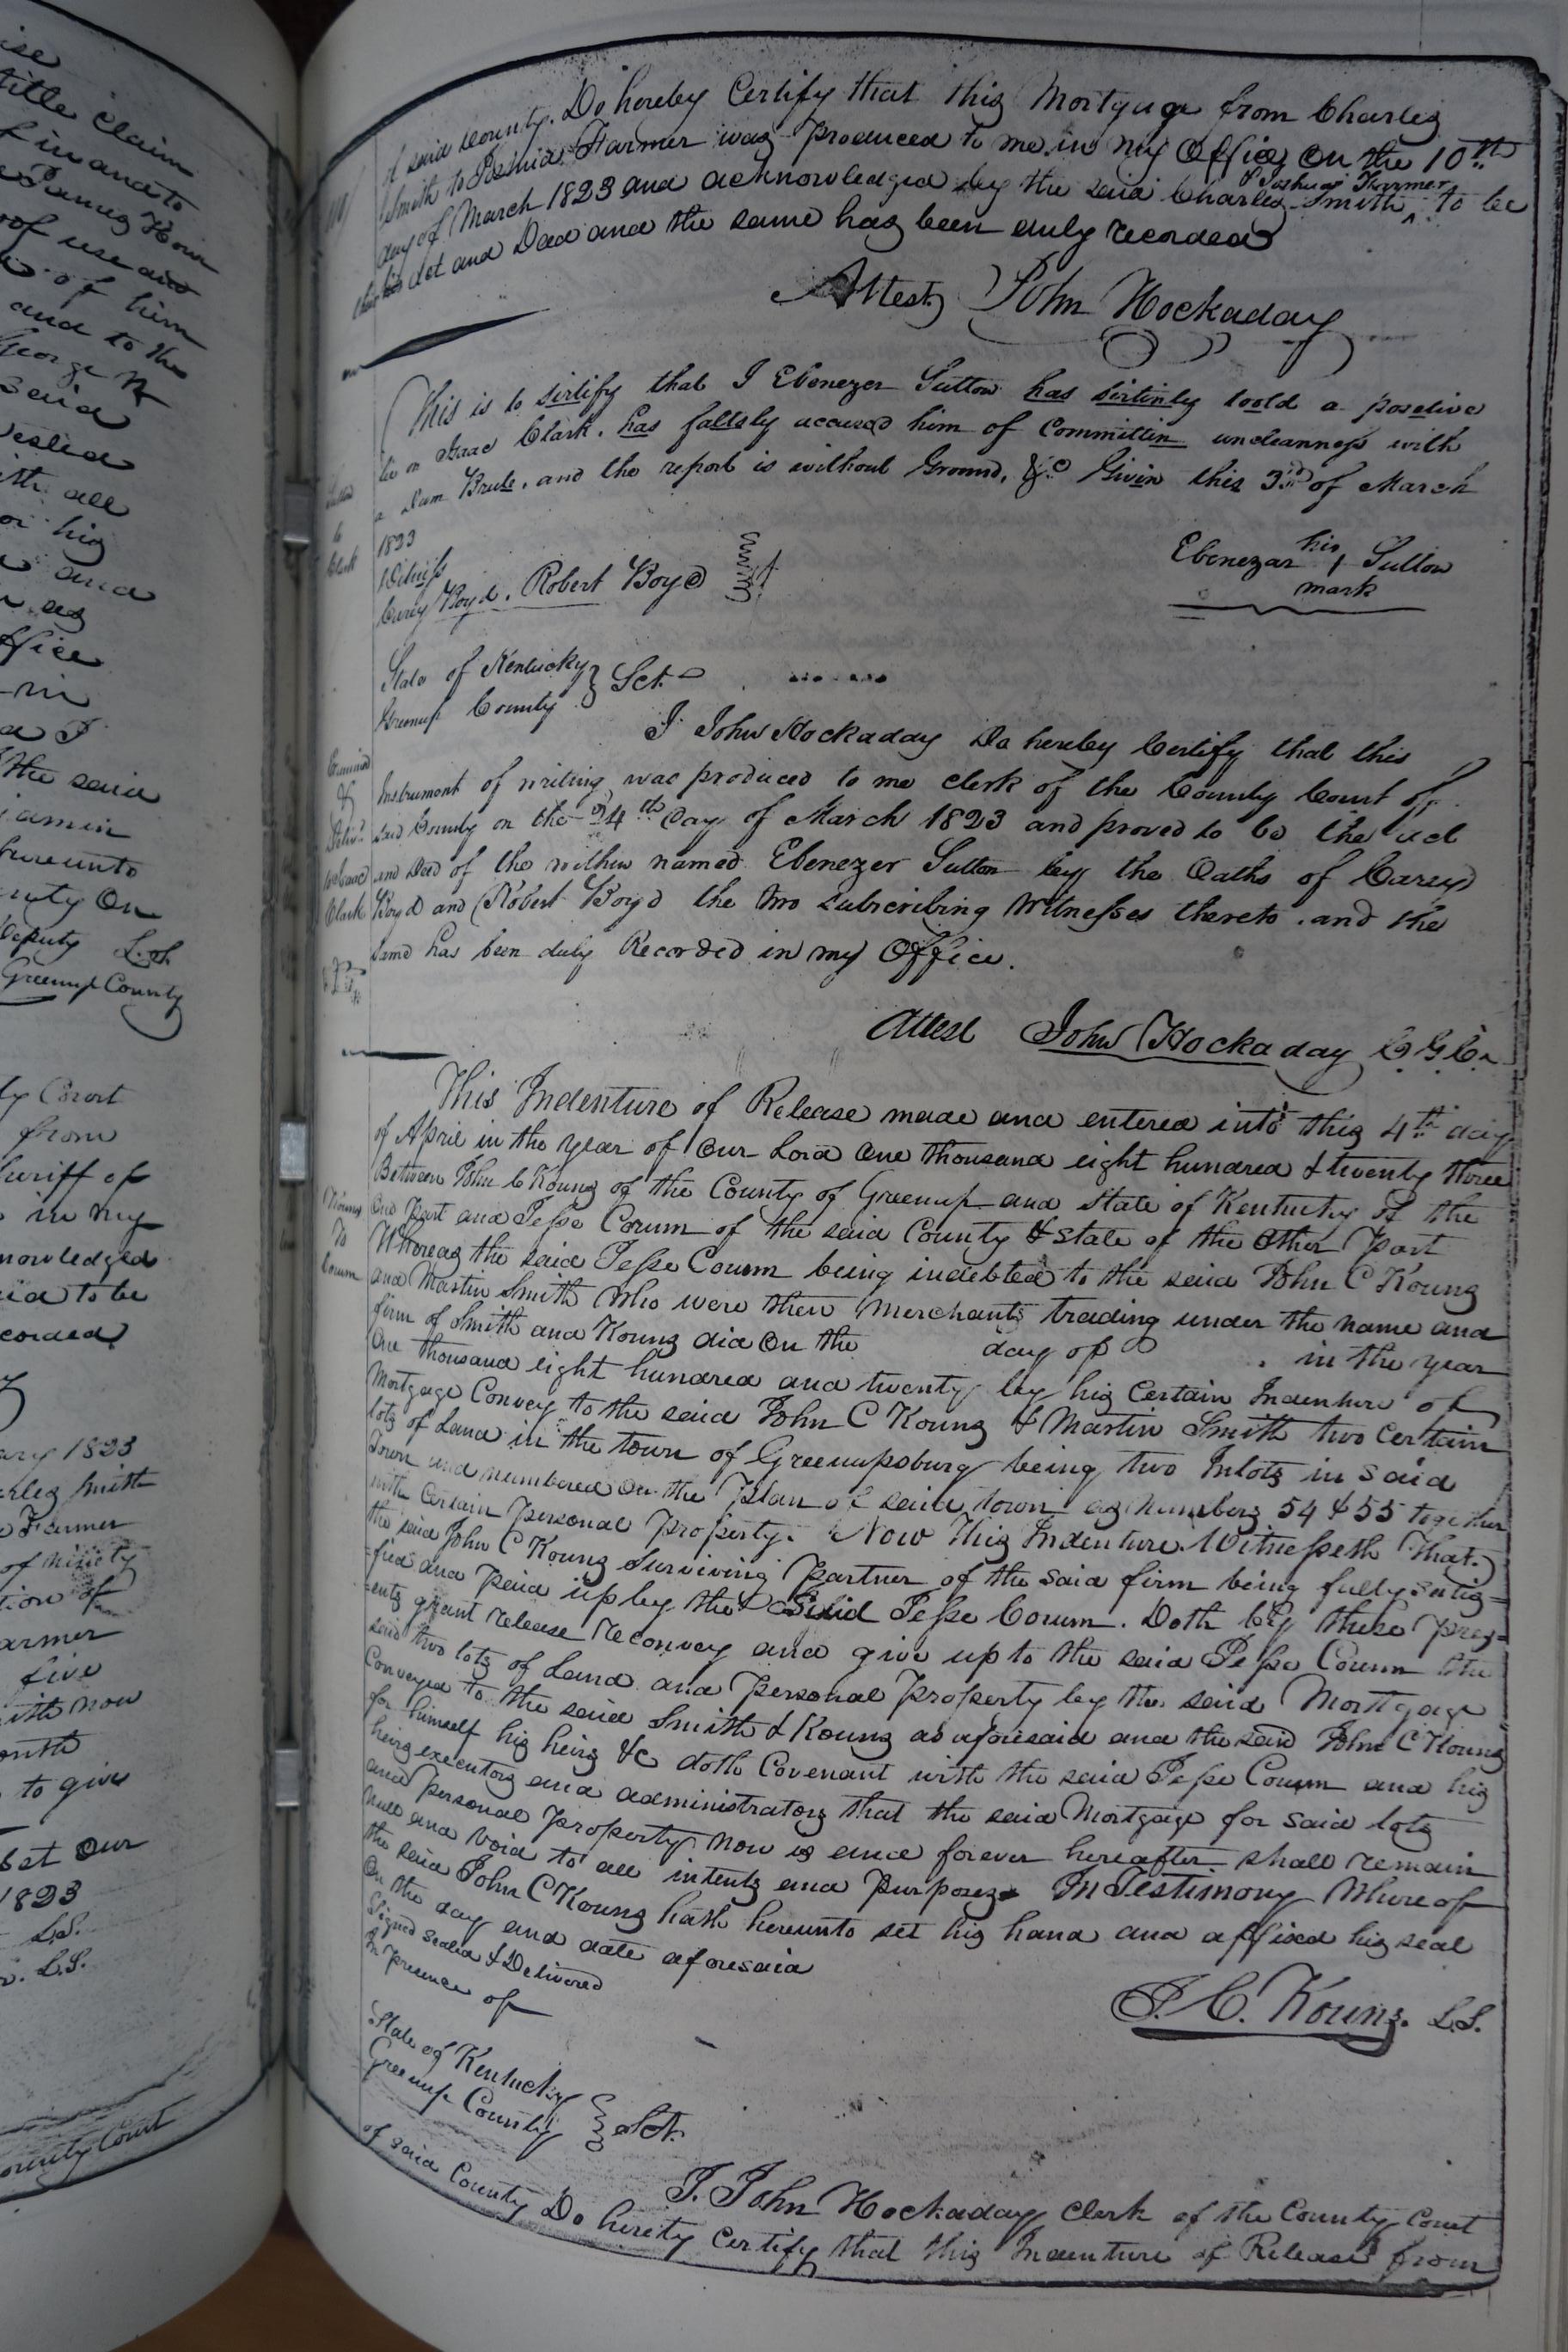 ise
title claim
James Howe
of him
and to the
George W
said
vested
with all
or his
and
as
office
in
a I
the said
jamin
hereunto
nuty On
Deputy L.S.
Greenup County
ty Court
from
Sheriff of
in my
nowledged
to be
corded
ary 1823
arles Smith
Farmer
of ninety
tion of
armer
five
ith now
onth
to give
set our
1823
L.S.
L.S.
ounty Court
of said County. Do hereby Certify that this Mortgage from Charles
Smith to Joshua Farmer was produced to me in my Office on the 10th
& Joshua Farmer
day of March 1823 and acknowledged by the said Charles Smith ^ to be
their his Act and Deed and the same has been duly recorded
Attest John Hockaday
This is to sirtify that I Ebenezer Sutton has sirtinly toold a posetive
lie on Isaac Clark. has faltsly accused him of Committin uncleanness with
a Dum Brute. and the report is without Ground, &c Given this 3rd of March
1823
Witness
Carey Boyd. Robert Boyd
Ebenezar his + mark Sutton
Sutton
to
Clark
State of Kentucky } Sct.
Greenup County
I John Hockaday Do hereby Certify that this
Instrument of writing was produced to me Clerk of the County Court of
said County on the 24th Day of March 1823 and proved to be the act
and Deed of the within named Ebenezer Sutton by the Oaths of Carey
Boyd and Robert Boyd the two subscribing Witnesses thereto. and the
same has been duly Recorded in my Office.
Examined
&
Deliv'd
to Isaac
Clark
Attest John Hockaday C.G.C.
This Indenture of Release made and entered into this 4th day
of April in the year of Our Lord One thousand eight hundred & twenty three
Between John C Kouns of the County of Greenup and State of Kentucky of the
One Part and Jesse Corum of the said County & State of the Other Part
Whereas the said Jesse Corum being indebted to the said John C Kouns
and Martin Smith Who were then Merchants trading under the name and
firm of Smith and Kouns did On the day of . in the year
One thousand eight hundred and twenty by his Certain Indenture of
Mortgage Convey to the said John C Kouns & Martin Smith two certain
lots of Land in the town of Greenupsburg being two Inlots in said
Town and numbered on the Plan of said town as Numbers 54 & 55 together
with Certain Personal Property. Now This Indenture Witnesseth That
the said John C Kouns Surviving Partner of the said firm being fully satis=
=fied and Paid up by the said Jesse Corum. Doth by these Pres=
=ents grant release reconvey and give up to the said Jesse Corum the
said two lots of Land and Personal Property by the said Mortgage
Conveyed to the said Smith & Kouns as aforesaid and the said John C Kouns
for himself his heirs &c doth Covenant with the said Jesse Corum and his
heirs executors and administrators that the said Mortgage for said lots
and Personal Property now is and forever hereafter shall remain
null and void to all intents and Purposes In Testimony Whereof
the said John C Kouns hath hereunto set his hand and affixed his seal
On the day and date aforesaid
Kouns
To
Corum
Signed Sealed & Delivered
In presence of
J. C. Kouns. L.S.
State of Kentucky } Sct.
Greenup County
I. John Hockaday Clerk of the County Court
of said County Do hereby Certify that this Indenture of Release from